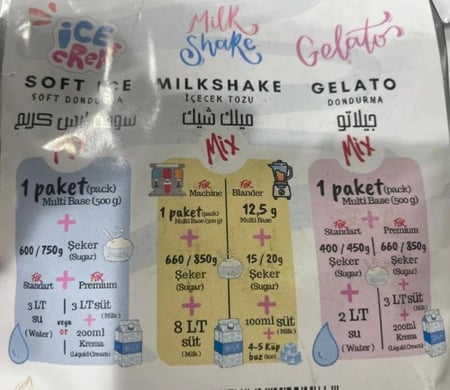 iCE CREAM
SOFT ICE
SOFT DONDURMA
سوفت ايس كريم
Mix
1 paket (pack)
Multi Base (500 g)
+
600/750g Şeker
(Sugar)
+
FOR Standart
3 LT
su
(Water)
veya
or
FOR Premium
3 LT süt
(Milk)
+
200ml
Krema
(Liquid Cream)
MILK SHAKE
MILKSHAKE
İÇECEK TOZU
ميلك شيك
Mix
FOR Machine
1 paket (pack)
Multi Base (500 g)
+
660 / 850g
Şeker
(Sugar)
+
8 LT
süt
(Milk)
FOR Blander
12,5 g
Multi Base
+
15 / 20g
Şeker
(Sugar)
+
100ml süt
(Milk)
+
4-5 Küp
buz (Ice)
Gelato
GELATO
DONDURMA
جيلاتو
Mix
1 paket (pack)
Multi Base (500 g)
+
FOR Standart
400 / 450g
Şeker
(Sugar)
FOR Premium
660 / 850g
Şeker
(Sugar)
+
2 LT
süt
(Milk)
+
200ml
Krema
(Liquid Cream)